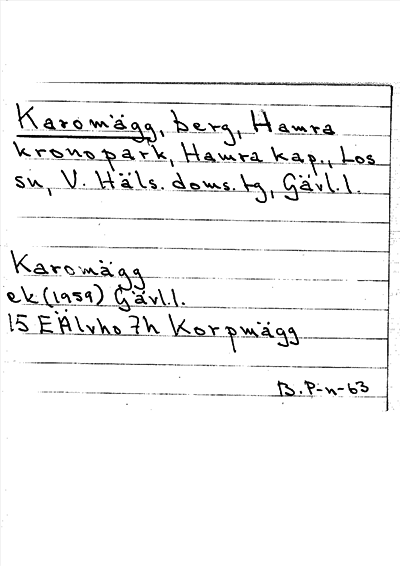 Karomägg, berg, Hamra
kronopark, Hamra kap., Los
sn, V. Häls. doms. tg, Gävl.l.
Karomägg
ek (1959) Gävl.l.
15 E Älvho 7h Korpmägg
B. P-n-63